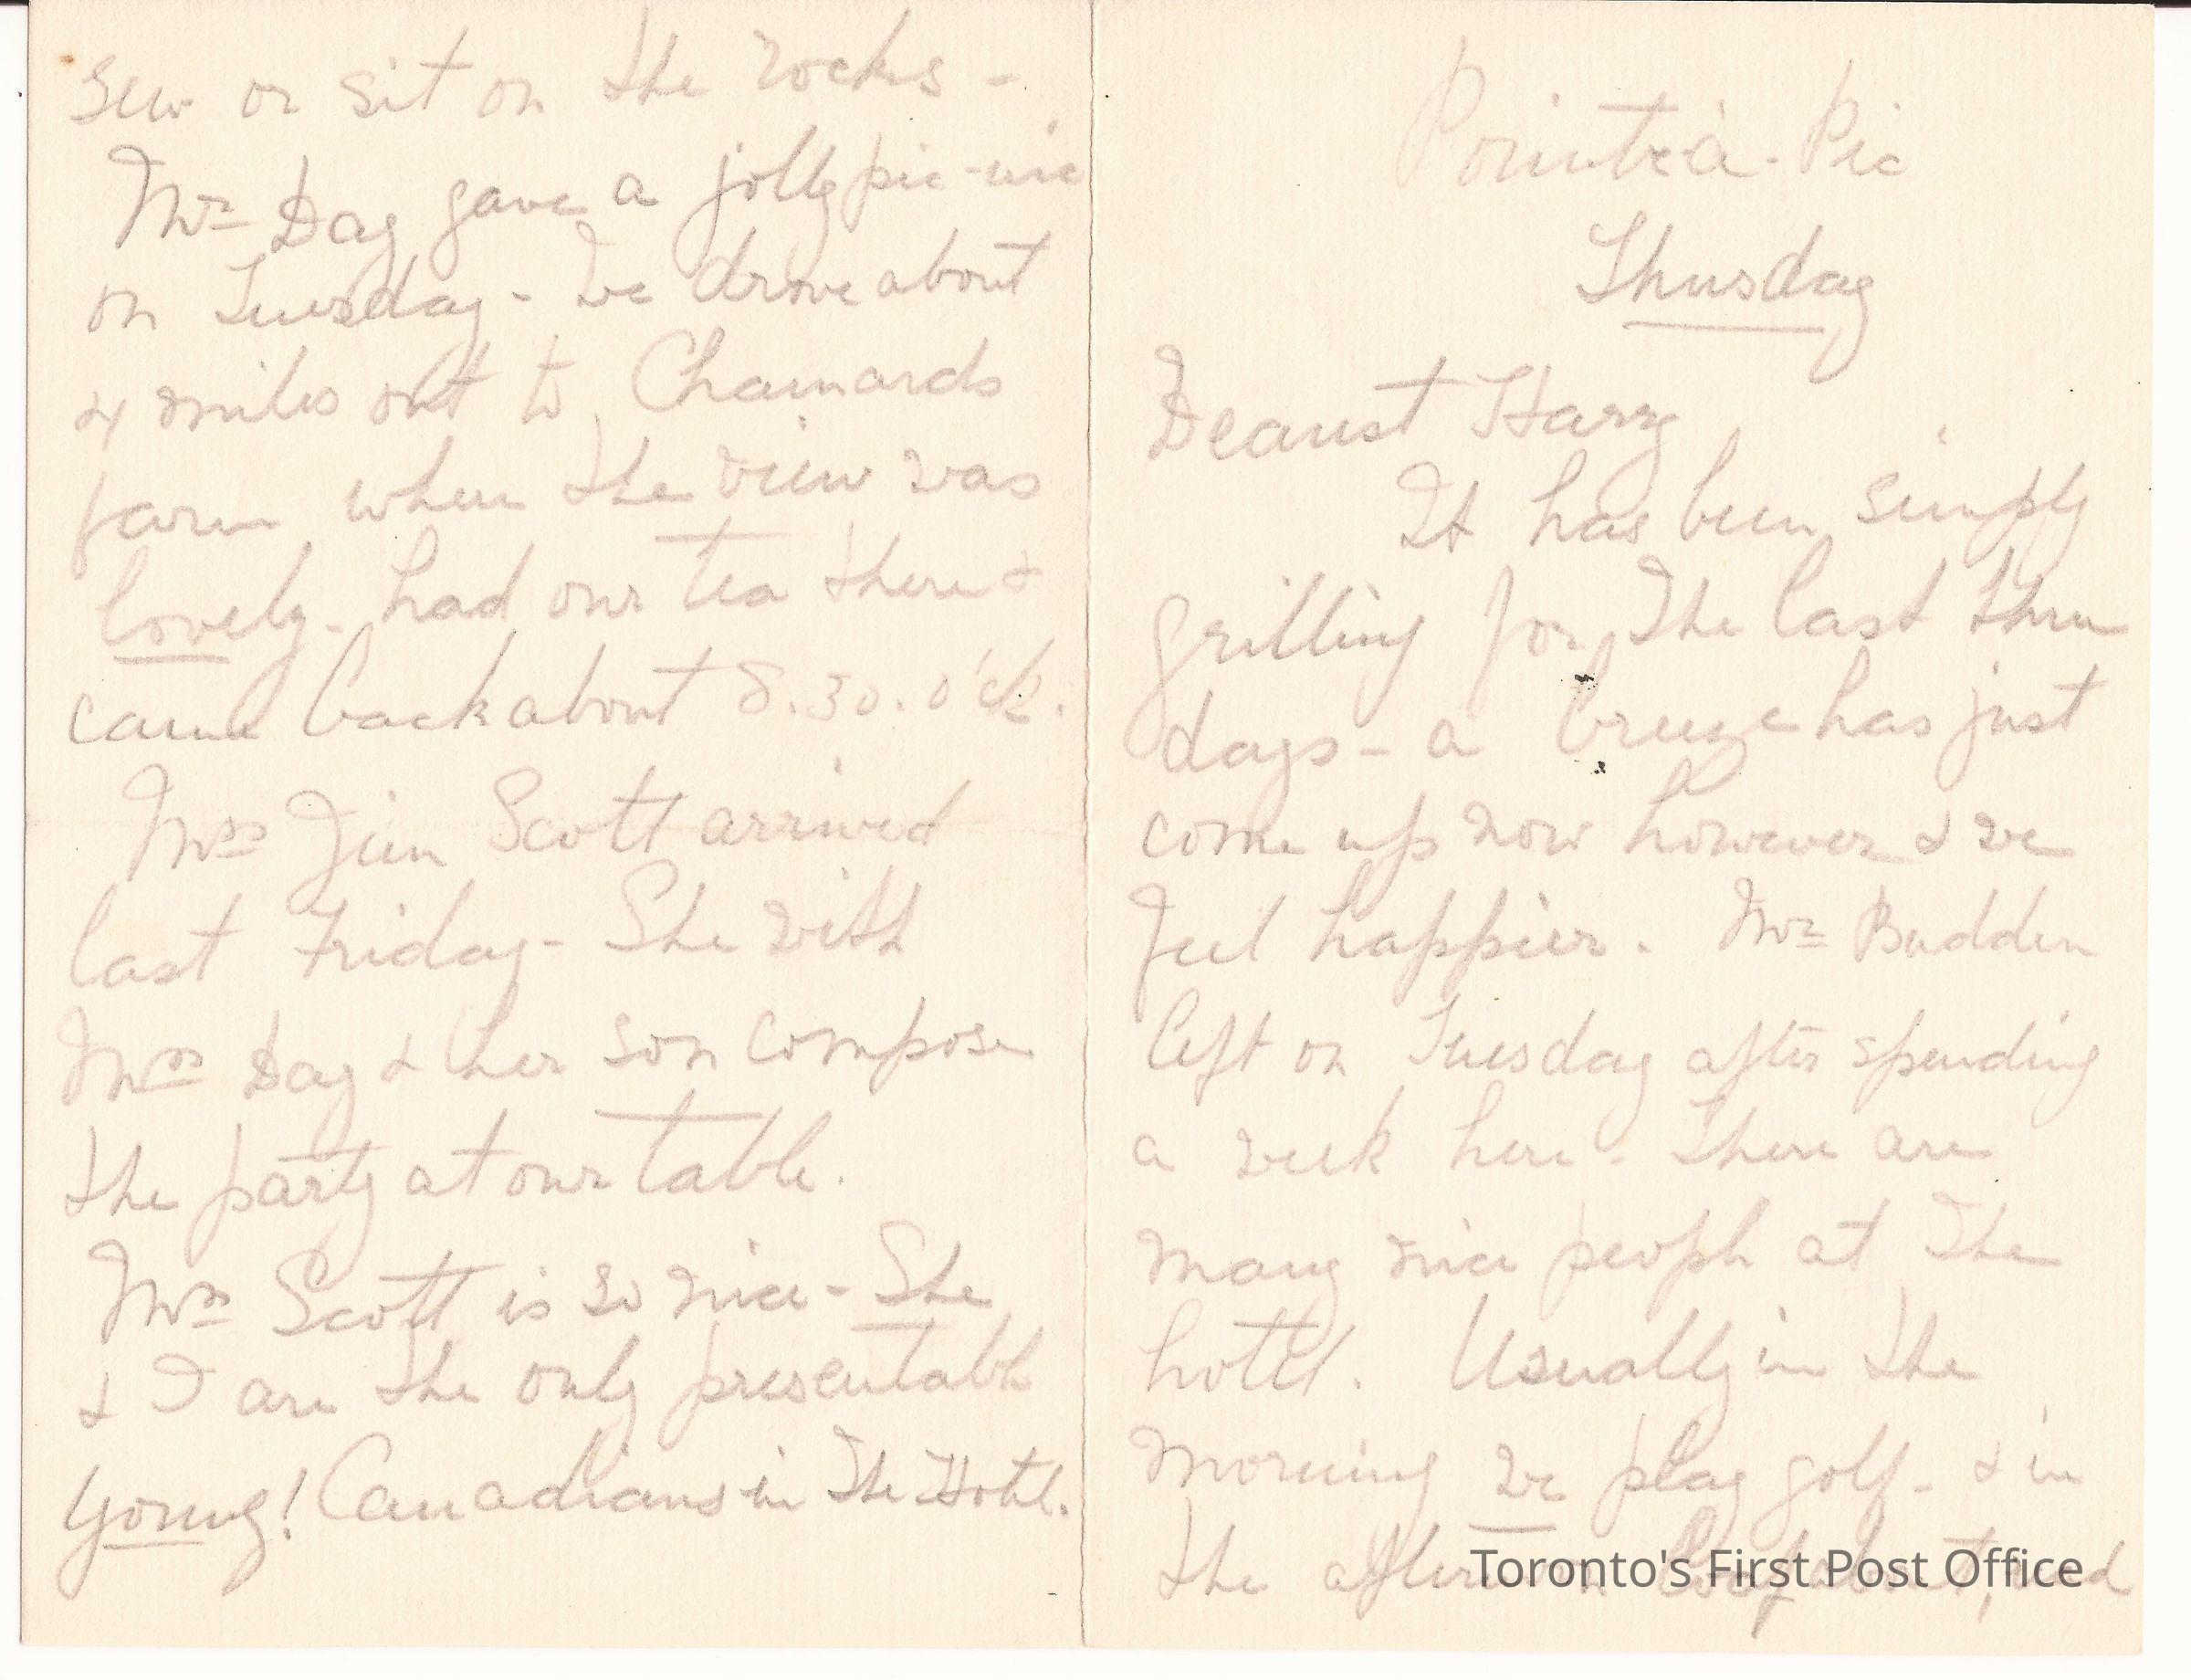 Pointe-à-Pic
Thursday
Dearest Harry
It has been simply
grilling for the last three
days - a breeze has just
come up now however & we
feel happier. Mr Budden
left on Tuesday after spending
a week here. There are
many nice people at the
hotel. Usually in the
morning we play golf - & in
the afternoon loaf about, read
sew or sit on the rocks -
Mr Day gave a jolly pic-nic
on Tuesday - We drove about
4 miles out to Chamards
farm where the view was
lovely - had our tea there &
came back about 8.30. o'ck.
Mrs Jim Scott arrived
last Friday - She with
Mrs Day & her son compose
the party at our table.
Mrs Scott is so nice - She
& I are the only presentable
young! Canadians in the Hotel.
Toronto's First Post Office